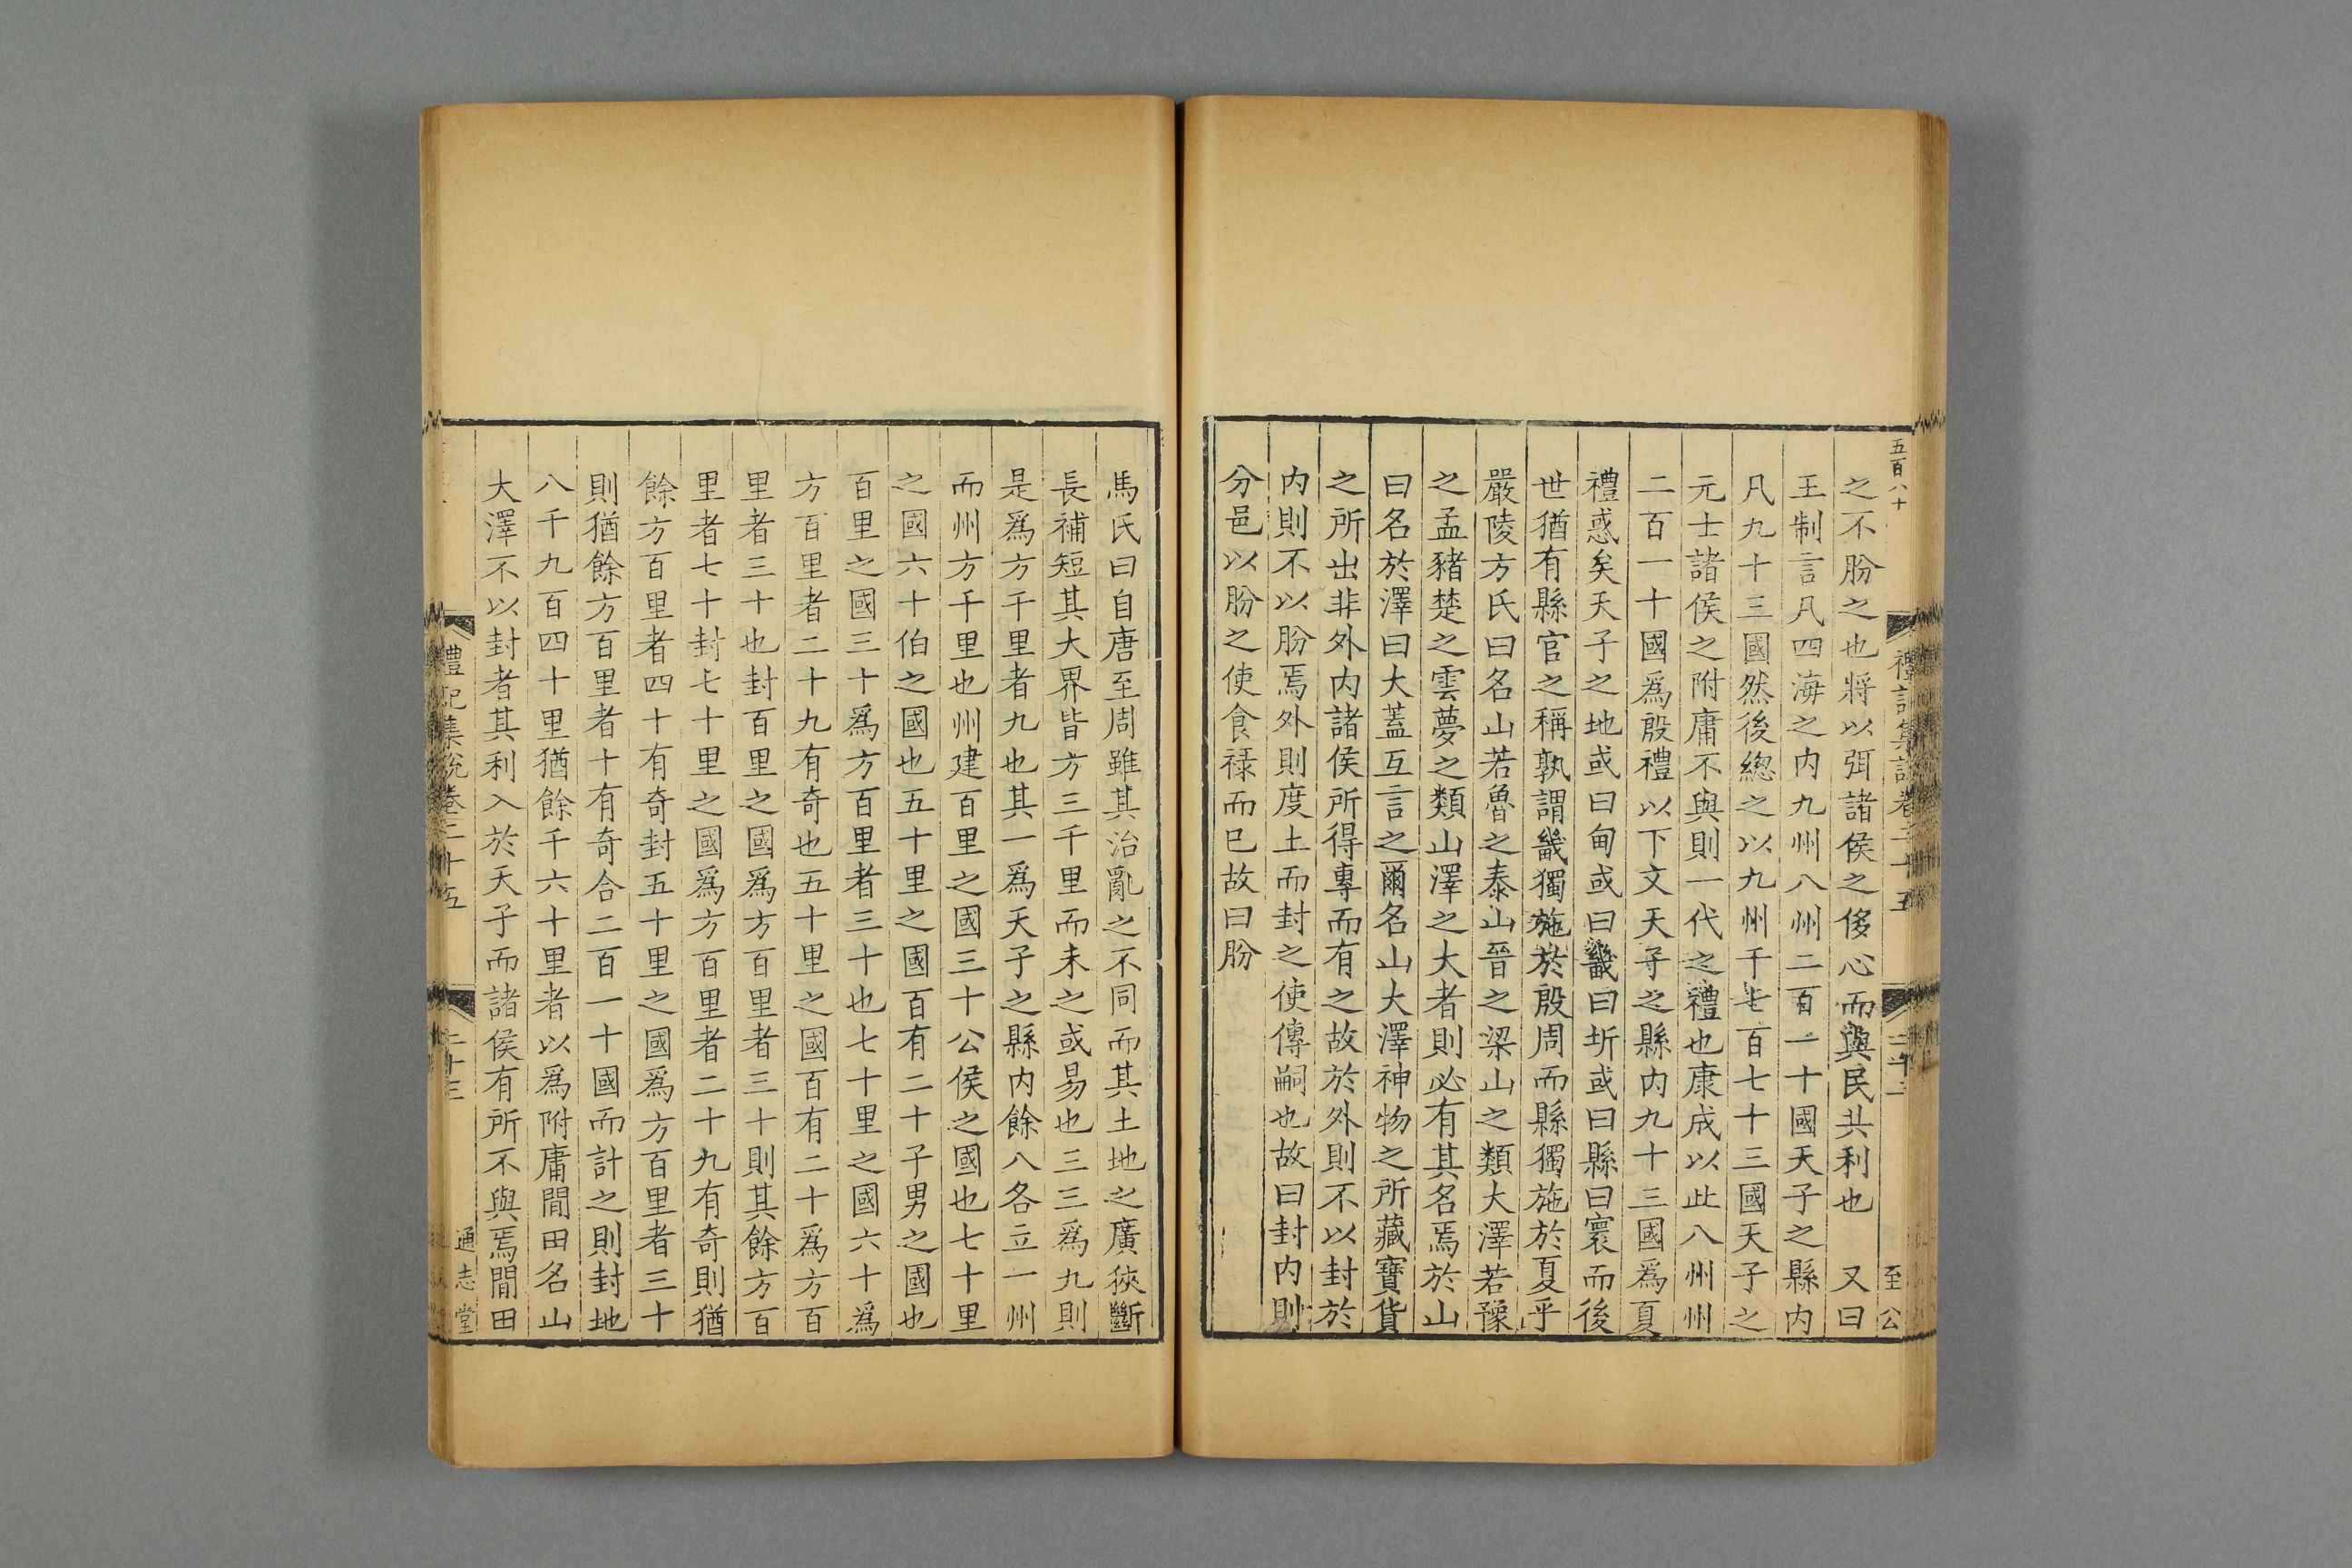 五百八十
禮記集說卷二十五
二十二
至公
之不朌之也將以弭諸侯之侈心而與民共利也 又曰
王制言凡四海之内九州八州二百一十國天子之縣内
凡九十三國然後總之以九州千七百七十三國天子之
元士諸侯之附庸不與則一代之禮也康成以此八州州
二百一十國爲殷禮以下文天子之縣内九十三國爲夏
禮惑矣天子之地或曰甸或曰畿曰圻或曰縣曰寰而後
世猶有縣官之稱孰謂畿獨施於殷周而縣獨施於夏乎
嚴陵方氏曰名山若魯之泰山晉之梁山之類大澤若豫
之孟豬楚之雲夢之類山澤之大者則必有其名焉於山
曰名於澤曰大蓋互言之爾名山大澤神物之所藏寶貨
之所出非外内諸侯所得專而有之故於外則不以封於
内則不以朌焉外則度土而封之使傳嗣也故曰封内則
分邑以朌之使食祿而已故曰朌
馬氏曰自唐至周雖其治亂之不同而其土地之廣狹斷
長補短其大界皆方三千里而未之或易也三三爲九則
是爲方千里者九也其一爲天子之縣内餘八各立一州
而州方千里也州建百里之國三十公侯之國也七十里
之國六十伯之國也五十里之國百有二十子男之國也
百里之國三十爲方百里者三十也七十里之國六十爲
方百里者二十九有奇也五十里之國百有二十爲方百
里者三十也封百里之國爲方百里者三十則其餘方百
里者七十封七十里之國爲方百里者二十九有奇則猶
餘方百里者四十有奇封五十里之國爲方百里者三十
則猶餘方百里者十有奇合二百一十國而計之則封地
八千九百四十里猶餘千六十里者以爲附庸閒田名山
大澤不以封者其利入於天子而諸侯有所不與焉閒田
禮記集說卷二十五
二十三
通志堂